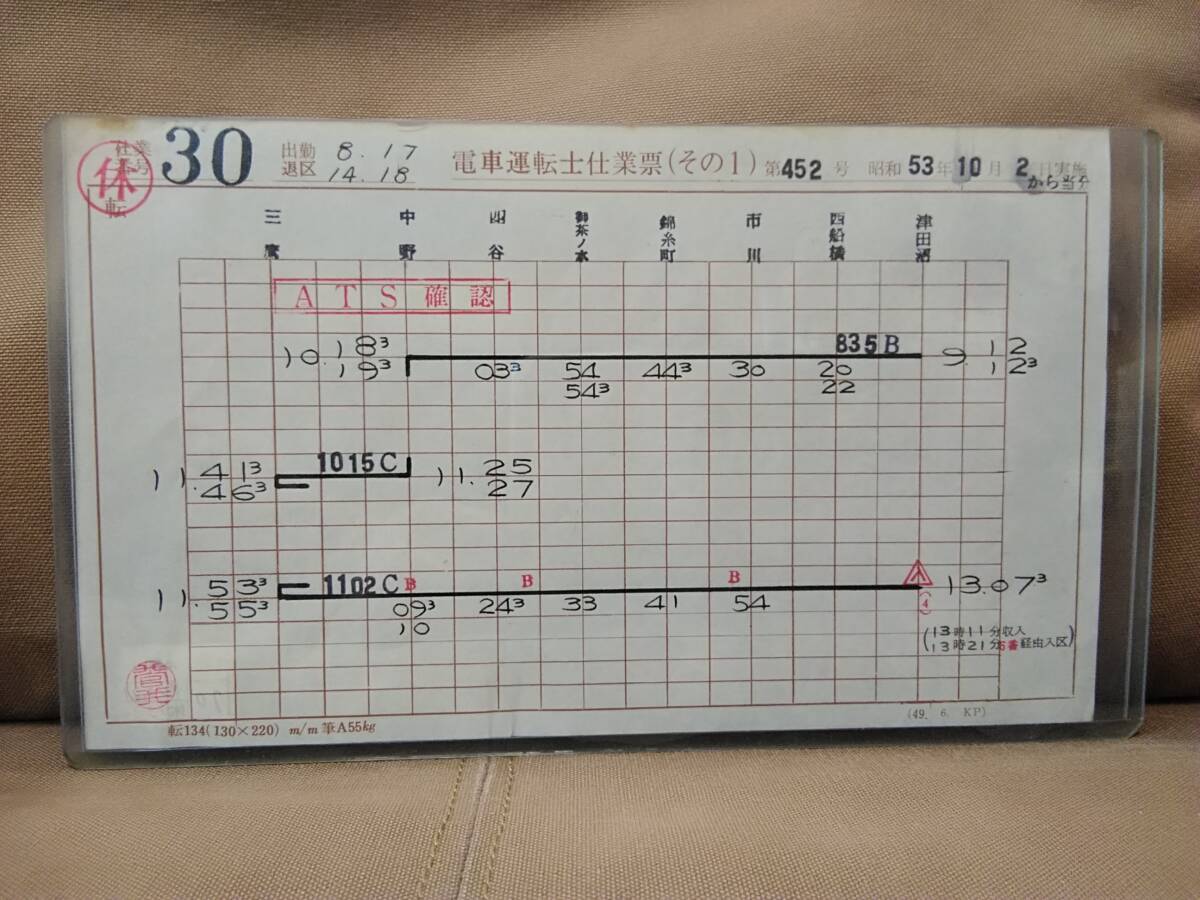 仕業番号 30 出勤 8.17 電車運転士仕業票(その1) 第452号 昭和53年10月2日実施
退区 14.18 から当分
休
転
三鷹 中野 四谷 御茶ノ水 錦糸町 市川 西船橋 津田沼
ATS確認
10.18³ 835B 9.12
19³ 03³ 54 44³ 30 20 12³
54³ 22
11.41³ 1015C 11.25
46³ 27
11.53³ 1102C B B B 13.07³
55³ 09³ 24³ 33 41 54 (4)
10
(13時11分収入
13時21分6番経由入区)
転134(130×220) m/m 筆A55kg
(49. 6. KP)